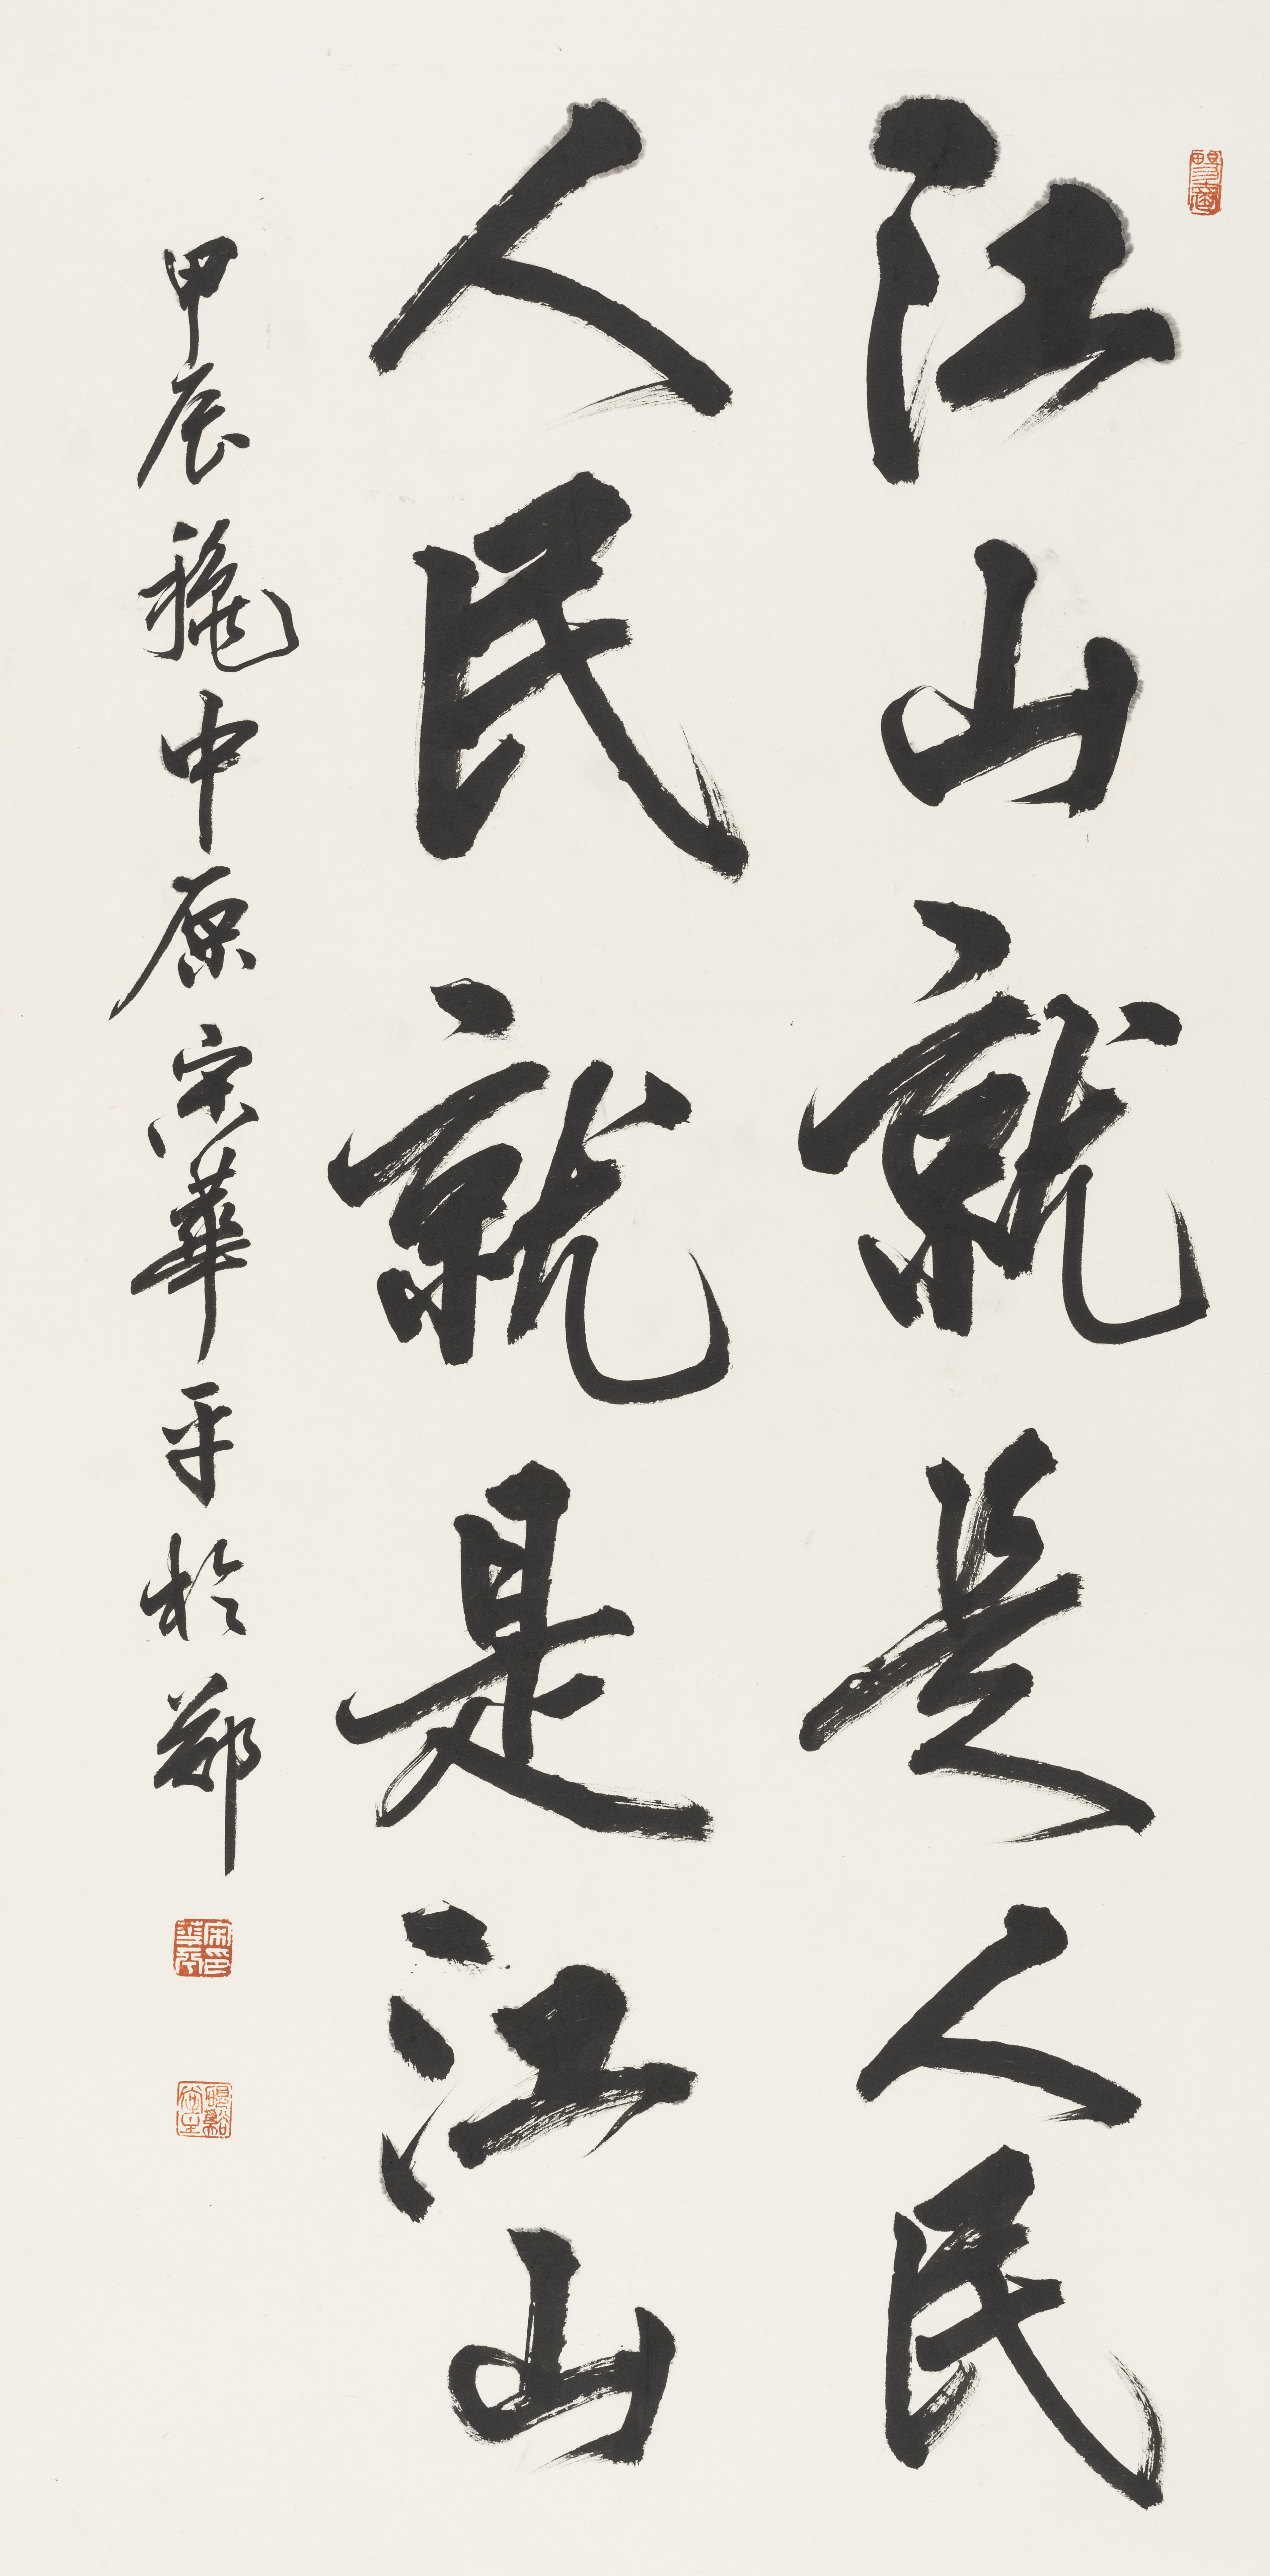 江山就是人民
人民就是江山
甲辰龝中原宋華平於鄭